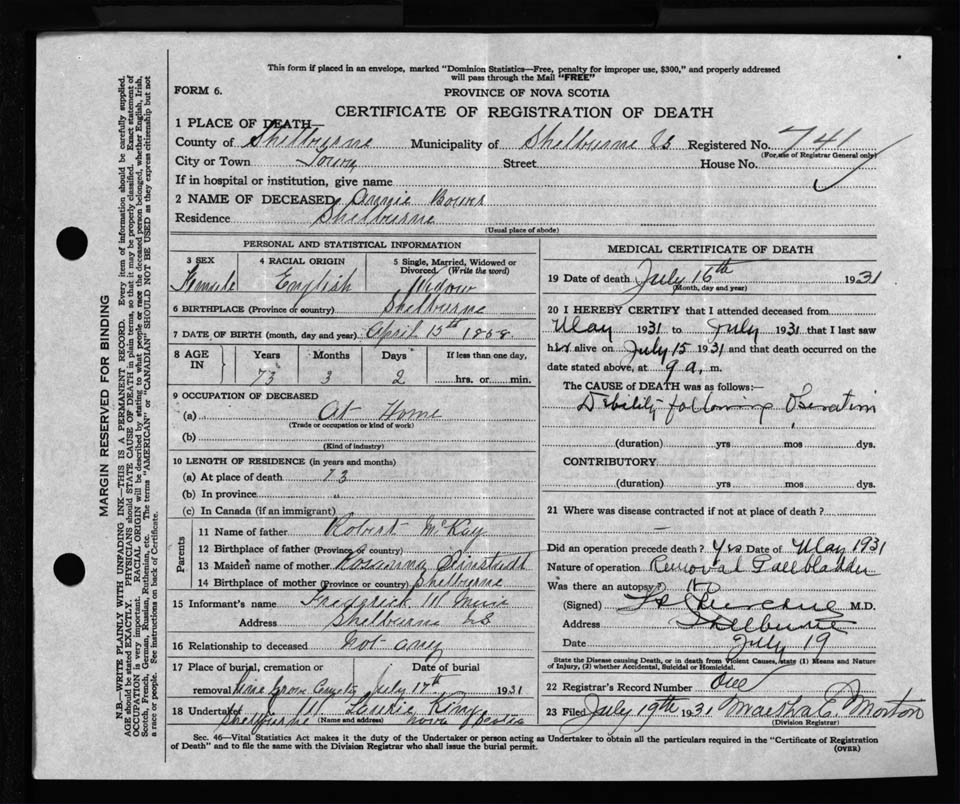 This form if placed in an envelope, marked "Dominion Statistics—Free, penalty for improper use, $300," and properly addressed
will pass through the Mail "FREE"
FORM 6.
PROVINCE OF NOVA SCOTIA
CERTIFICATE OF REGISTRATION OF DEATH
1 PLACE OF DEATH—
County of Shelburne Municipality of Shelburne NS Registered No. 741
(For use of Registrar General only)
City or Town Town Street House No.
If in hospital or institution, give name
2 NAME OF DECEASED Annie Bower
Residence Shelburne
(Usual place of abode)
PERSONAL AND STATISTICAL INFORMATION
3 SEX 4 RACIAL ORIGIN 5 Single, Married, Widowed or
Divorced (Write the word)
Female English Widow
6 BIRTHPLACE (Province or country) Shelburne
7 DATE OF BIRTH (month, day and year) April 15th 1858
8 AGE IN Years Months Days If less than one day,
73 3 2 hrs. or min.
9 OCCUPATION OF DECEASED
(a) At Home
(Trade or occupation or kind of work)
(b)
(Kind of industry)
10 LENGTH OF RESIDENCE (in years and months)
(a) At place of death 73
(b) In province "
(c) In Canada (if an immigrant)
Parents
11 Name of father Robert McKay
12 Birthplace of father (Province or country)
13 Maiden name of mother
14 Birthplace of mother (Province or country) Shelburne
15 Informant's name Frederick M
Address Shelburne NS
16 Relationship to deceased Not any
17 Place of burial, cremation or Date of burial
removal Pine Grove Cemetery July 17th 1931
18 Undertaker King
Shelburne (Name and address) Nova Scotia
MEDICAL CERTIFICATE OF DEATH
19 Date of death July 16th 1931
(Month, day and year)
20 I HEREBY CERTIFY that I attended deceased from
May 1931 to July 1931 that I last saw
her alive on July 15 1931 and that death occurred on the
date stated above, at 9 a. m.
The CAUSE OF DEATH was as follows:—
Debility following Operation
(duration) yrs mos dys.
CONTRIBUTORY
(duration) yrs mos dys.
21 Where was disease contracted if not at place of death?
Did an operation precede death? Yes Date of May 1931
Nature of operation Removal Gallbladder
Was there an autopsy? No
(Signed) M.D.
Address Shelburne
Date July 19
State the Disease causing Death, or in death from Violent Causes, state (1) Means and Nature
of Injury, (2) whether Accidental, Suicidal or Homicidal.
22 Registrar's Record Number
23 Filed July 19th 1931 Morton
(Division Registrar)
Sec. 46—Vital Statistics Act makes it the duty of the Undertaker or person acting as Undertaker to obtain all the particulars required in the "Certificate of Registration
of Death" and to file the same with the Division Registrar who shall issue the burial permit.
(OVER)
MARGIN RESERVED FOR BINDING
N.B.—WRITE PLAINLY WITH UNFADING INK—THIS IS A PERMANENT RECORD. Every item of information should be carefully supplied.
AGE should be stated EXACTLY. PHYSICIANS should STATE CAUSE OF DEATH in plain terms, so that it may be properly classified. Exact statement of
OCCUPATION is very important. RACIAL ORIGIN will be described by stating to what people or race the deceased person belonged, whether English, Irish,
Scotch, French, German, Russian, Ruthenian, etc. The terms "AMERICAN" or "CANADIAN" SHOULD NOT BE USED as they express citizenship but not
a race or people. See instructions on back of Certificate.